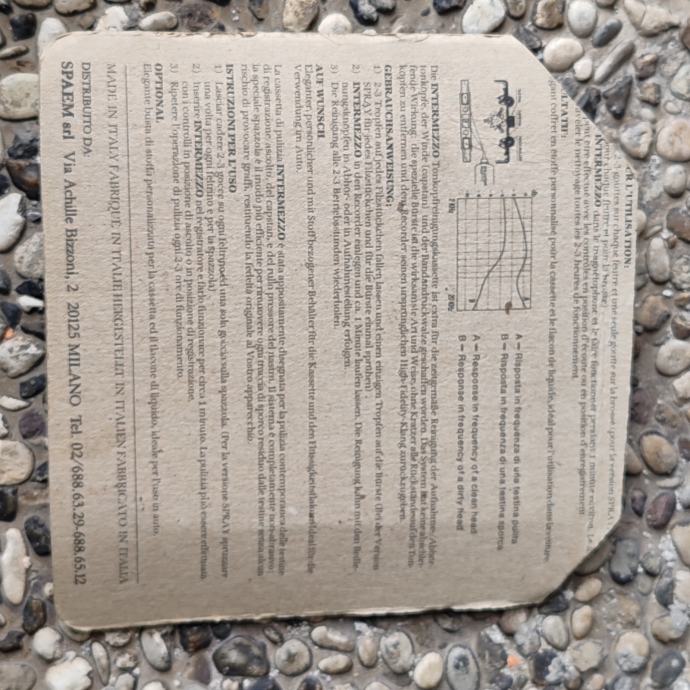 R L'UTILISATION:
2-3 gouttes sur chaque feutre et une seule goutte sur la brosse (pour la version SPRAY
pour chaque feutre et pour la brosse)
INTERMEZZO dans le magnétophone et le faire fonctionner pendant 1 minute environ. Le
peut être effectué avec les contrôles en position d'écoute ou en position d'enregistrement
le nettoyage toutes les 2-3 heures de fonctionnement.
TATIF:
coffret en étoffe personnalisé pour la cassette et le flacon de liquide, idéal pour l'utilisation dans la voiture.
A = Risposta in frequenza di una testina pulita
B = Risposta in frequenza di una testina sporca
A = Response in frequency of a clean head
B = Response in frequency of a dirty head
Die INTERMEZZO Tonkopfreinigungskassette ist extra für die zeitgemäße Reinigung der Aufnahme-, Abhör-
tonköpfe, der Winde (capstan) und der Bandandruckwalze geschaffen worden. Das System hat keine abschlei-
fende Wirkung: die spezielle Bürste ist die wirksamste Art und Weise, ohne Kratzer alle Rückstände auf den Ton-
köpfen zu entfernen und dem Recorder seinen ursprünglichen High-Fidelity-Klang zurückzugeben.
GEBRAUCHSANWEISUNG:
1) 2-3 Tropfen auf jedes Filzstückchen fallen lassen und einen einzigen Tropfen auf die Bürste (Bei der Version
SPRAY für jedes Filzstückchen und für die Bürste einmal sprühen)
2) INTERMEZZO in den Recorder einlegen und ca. 1 Minute laufen lassen. Die Reinigung kann mit den Bedie-
nungsknöpfen in Abhör- oder in Aufnahmestellung erfolgen.
3) Die Reinigung alle 2-3 Betriebsstunden wiederholen.
AUF WUNSCH
Eleganter, persönlicher und mit Stoff bezogener Behälter für die Kassette und den Flüssigkeitsflakon ideal für die
Verwendung im Auto.
La cassetta di pulizia INTERMEZZO è stata appositamente disegnata per la pulizia contemporanea delle testine
di registrazione, ascolto, del capstan, e del rullo pressore del nastro. Il sistema è completamente non abrasivo:
la speciale spazzola è il modo più efficiente per rimuovere ogni traccia di sporco residuo dalle testine senza alcun
rischio di provocare graffi, restituendo la fedeltà originale al Vostro apparecchio.
ISTRUZIONI PER L'USO
1) Lasciar cadere 2-3 gocce su ogni feltrino ed una sola goccia sulla spazzola. (Per la versione SPRAY spruzzare
una volta per ogni feltrino e per la spazzola)
2) Inserire INTERMEZZO nel registratore e farlo funzionare per circa 1 minuto. La pulizia può essere effettuata
con i controlli in posizione di ascolto o in posizione di registrazione.
3) Ripetere l'operazione di pulizia ogni 2-3 ore di funzionamento.
OPTIONAL
Elegante busta di stoffa personalizzato per la cassetta ed il flacone di liquido, ideale per l'uso in auto.
MADE IN ITALY FABRIQUÉ EN ITALIE HERGESTELLT IN ITALIEN FABBRICATO IN ITALIA
DISTRIBUITO DA
SPAEM srl Via Achille Bizzoni, 2 20125 MILANO Tel. 02/688.63.29-688.65.12